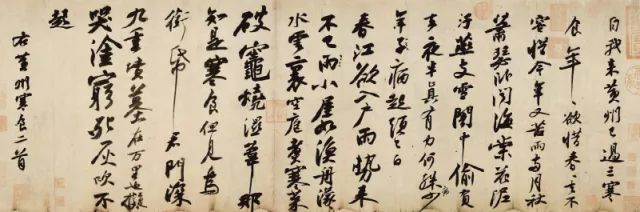 自我來黃州已過三寒
食年々欲惜春々去不
容惜今年又苦雨兩月秋
蕭瑟卧聞海棠花泥
汙燕支雪闇中偷負
去夜半真有力何殊病少
年子病起須已白
春江欲入戶雨勢來
不已雨小屋如漁舟濛々
水雲裏空庖煮寒菜
破竈燒濕葦那
知是寒食但見烏
銜帋君門深
九重墳墓在万里也擬
哭塗窮死灰吹不
起
右黃州寒食二首